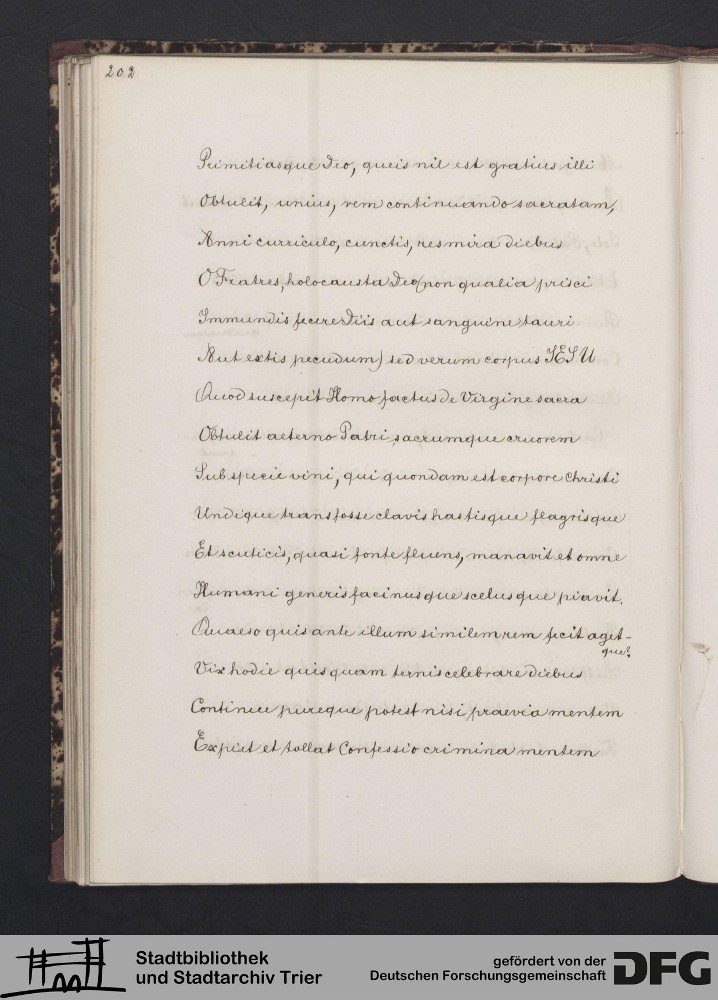 202
Primitiasque Deo, queis nil est gratius illi
Obtulit, unius, rem continuando sacratam,
Anni curriculo, cunctis, res mira diebus
O Fratres, holocausta Deo (non qualia prisci
Immundis fecere Diis aut sanguine tauri
Aut extis pecudum) sed verum corpus IESU
Quod suscepit Homo factus de Virgine sacra
Obtulit aeterno Patri, sacrumque cruorem
Sub specie vini, qui quondam est corpore Christi
Undique transfosse clavis hastisque flagrisque
Et scuticis, quasi fonte fluens, manavit et omne
Humani generis facinusque scelusque piavit.
Quaeso quis ante illum similem rem fecit aget-
que?
Vix hodie quisquam ternis celebrare diebus
Continue pureque potest nisi praevia mentem
Expiet et tollat Confessio crimina mentem
Stadtbibliothek
und Stadtarchiv Trier
gefördert von der
Deutschen Forschungsgemeinschaft
DFG